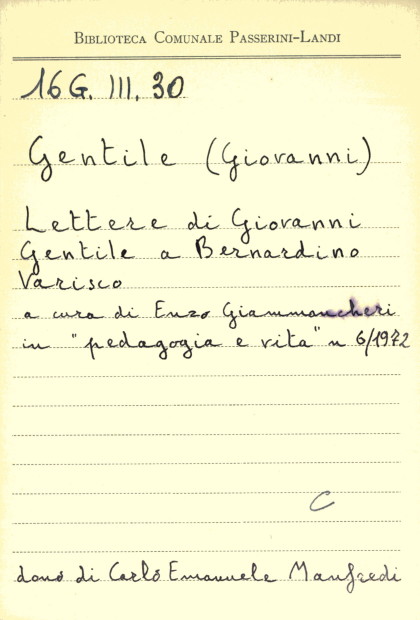 BIBLIOTECA COMUNALE PASSERINI-LANDI
16 G. III. 30
Gentile (Giovanni)
Lettere di Giovanni
Gentile a Bernardino
Varisco
a cura di Enzo Giammancheri
in "pedagogia e vita" n 6/1972
C
dono di Carlo Emanuele Manfredi